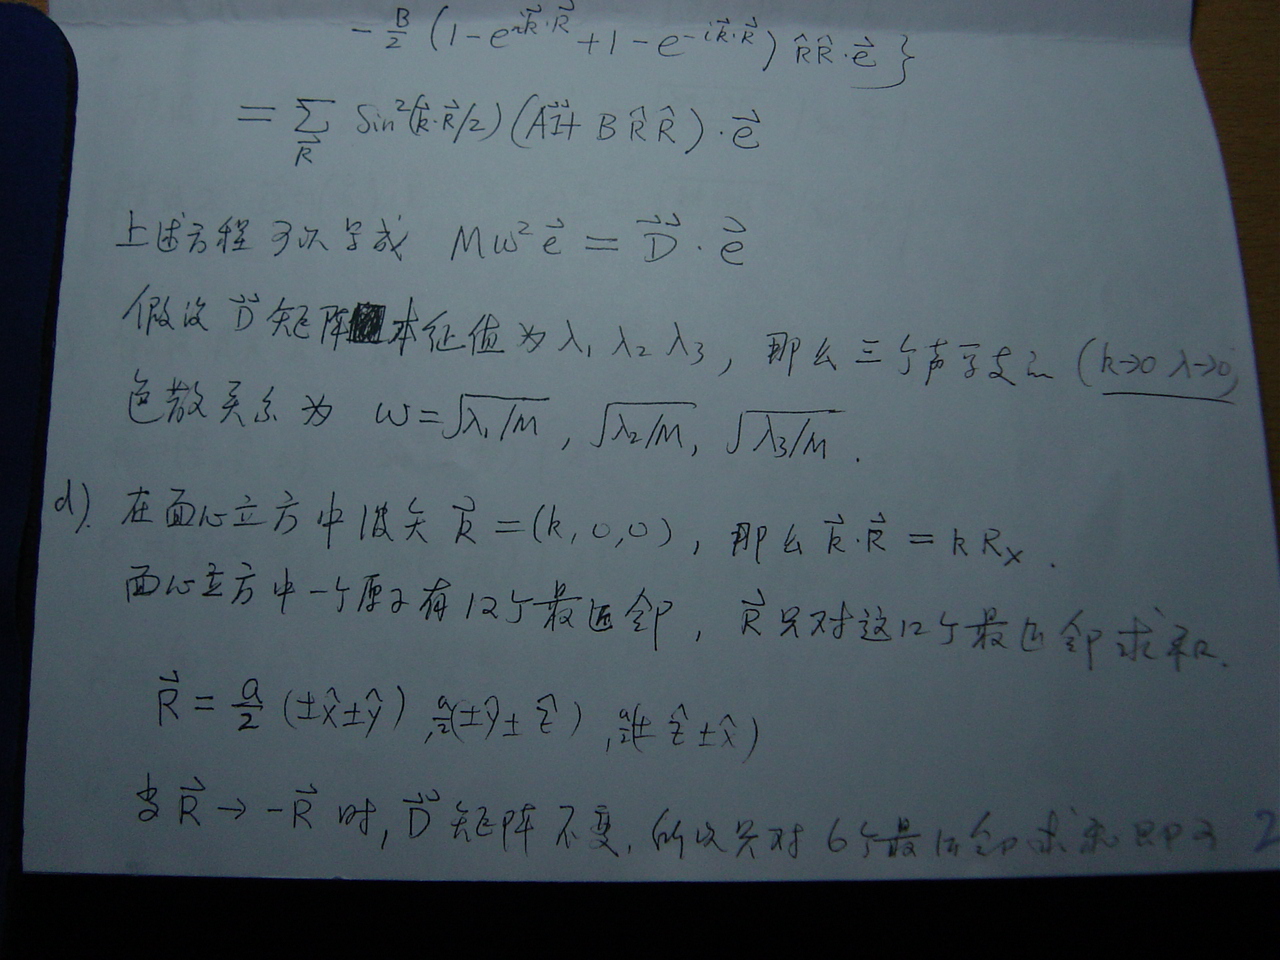 - B/2 (1 - e^{i\vec{k}·\vec{R}} + 1 - e^{-i\vec{k}·\vec{R}}) \hat{R}\hat{R}·\vec{e} }
= Σ_{\vec{R}} Sin²(\vec{k}·\vec{R}/2) (A\vec{\vec{I}} + B\hat{R}\hat{R})·\vec{e}
上述方程可以写成 Mω²\vec{e} = \vec{\vec{D}}·\vec{e}
假设 \vec{\vec{D}} 矩阵本征值为 λ₁ λ₂ λ₃, 那么三个声子支的 (k→0 λ→0)
色散关系为 ω = √(λ₁/M), √(λ₂/M), √(λ₃/M).
d). 在面心立方中波矢 \vec{k} = (k, 0, 0), 那么 \vec{k}·\vec{R} = kR_x.
面心立方中一个原子有12个最近邻, \vec{R} 只对这12个最近邻求和.
\vec{R} = a/2 (±\hat{x}±\hat{y}), a/2(±\hat{y}±\hat{z}), a/2(±\hat{z}±\hat{x})
当 \vec{R} → -\vec{R} 时, \vec{\vec{D}} 矩阵不变, 所以只对6个最近邻求和即可 2